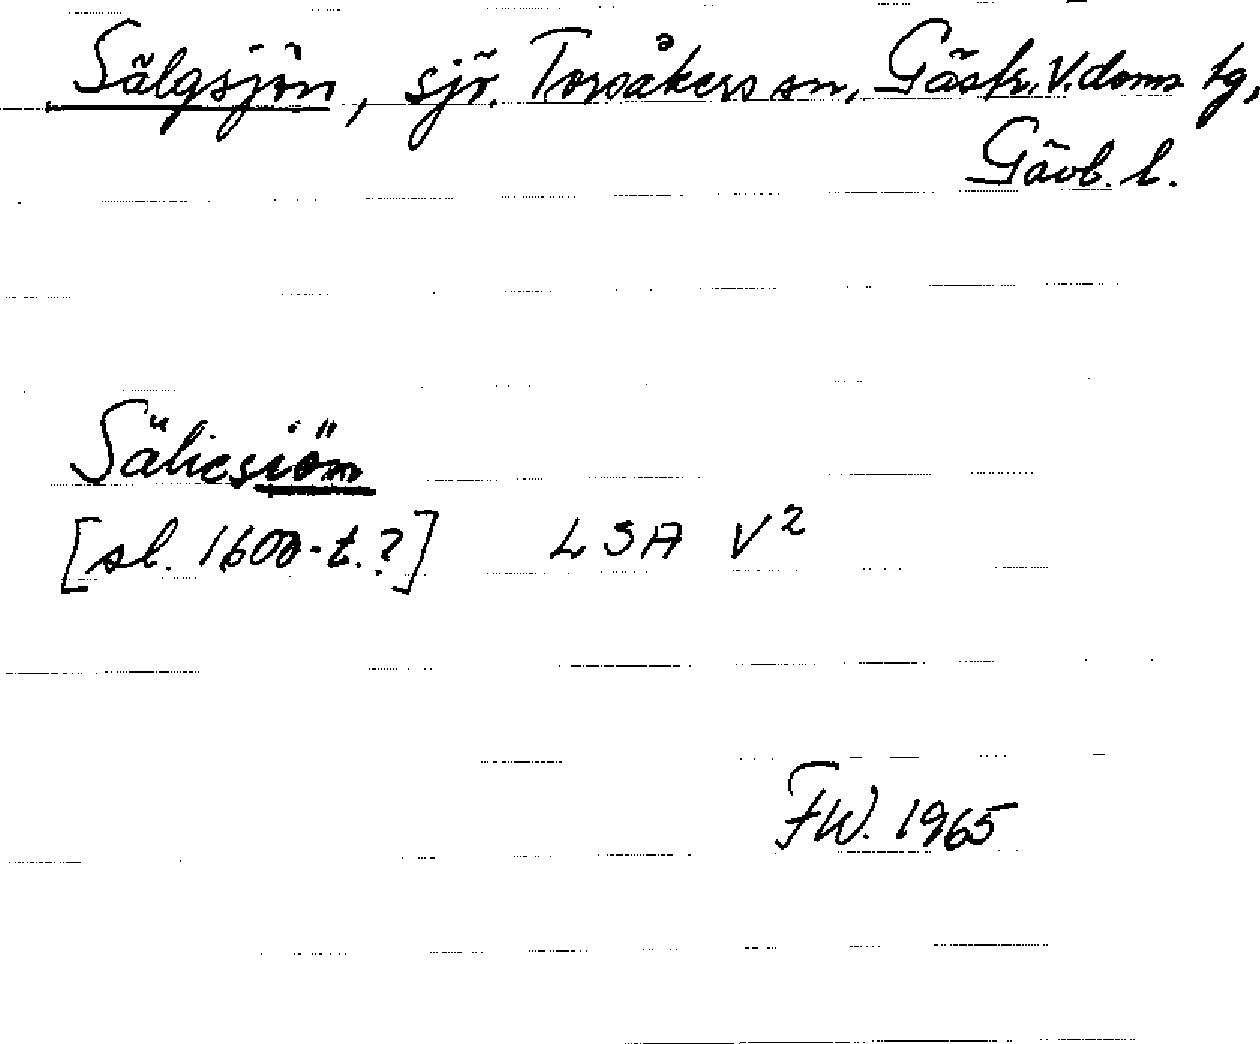 Sälgsjön, sjö. Torsåkers sn, Gästr. V. doms tg,
Gävb. l.
Säliesiöm
[sl. 1600-t.?] LSA V²
FW. 1965